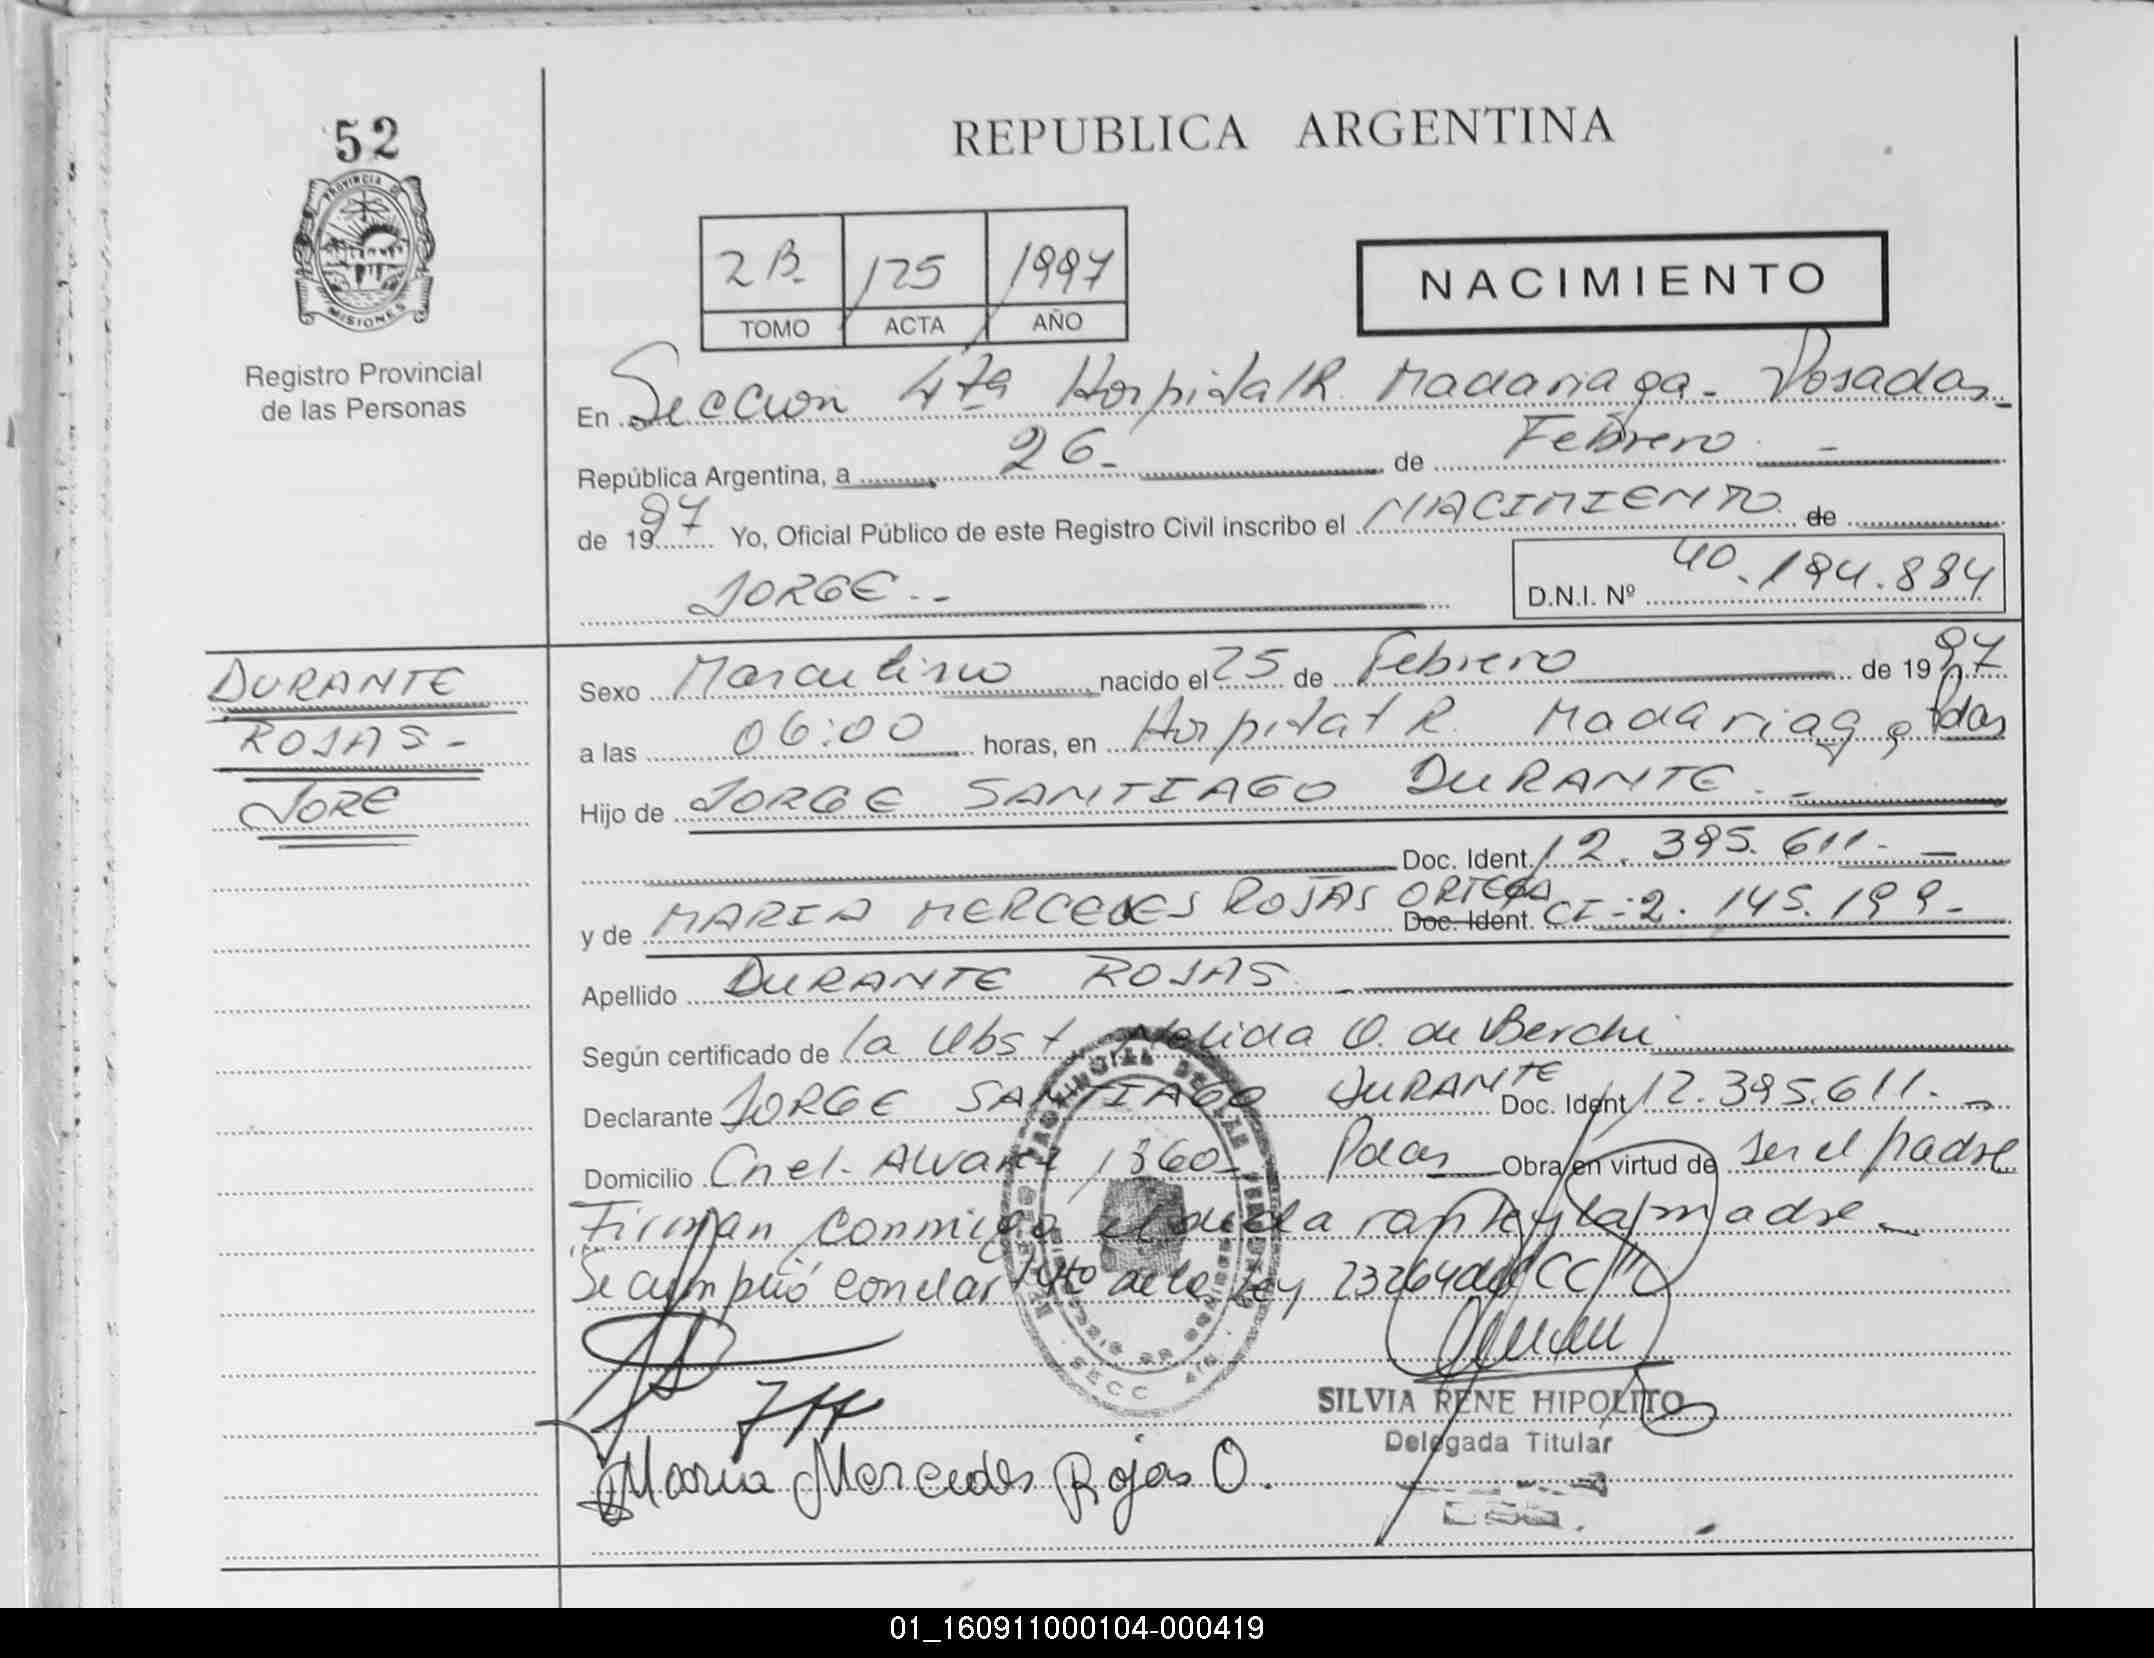 52
PROVINCIA DE
MISIONES
Registro Provincial
de las Personas
REPUBLICA ARGENTINA
2B- 125 1997
TOMO ACTA AÑO
NACIMIENTO
En Sección 4ta Hospital R. Madariaga - Posadas -
República Argentina, a 26 - de Febrero -
de 1997 Yo, Oficial Público de este Registro Civil inscribo el NACIMIENTO de
JORGE.-
D.N.I. Nº 40.194.884
DURANTE
ROJAS -
JORE
Sexo Masculino nacido el 25 de Febrero de 1997
a las 06:00 horas, en Hospital R. Madariaga, Pdas
Hijo de JORGE SANTIAGO DURANTE. -
Doc. Ident. 12.395.611. -
y de MARIA MERCEDES ROJAS ORTEGA Doc. Ident. CI - 2.145.199 -
Apellido DURANTE ROJAS -
Según certificado de la Obst Nelida O. de Berchi
Declarante JORGE SANTIAGO DURANTE Doc. Ident. 12.395.611. -
Domicilio Cnel. Alvarez 1360 - Pdas Obra en virtud de ser el padre
Firman conmigo el declarante y la madre -
Se cumplió con el art de la Ley 23264 del CC
SECC 4ta
SILVIA RENE HIPOLITO
Delegada Titular
Maria Mercedes Rojas O.
01_160911000104-000419